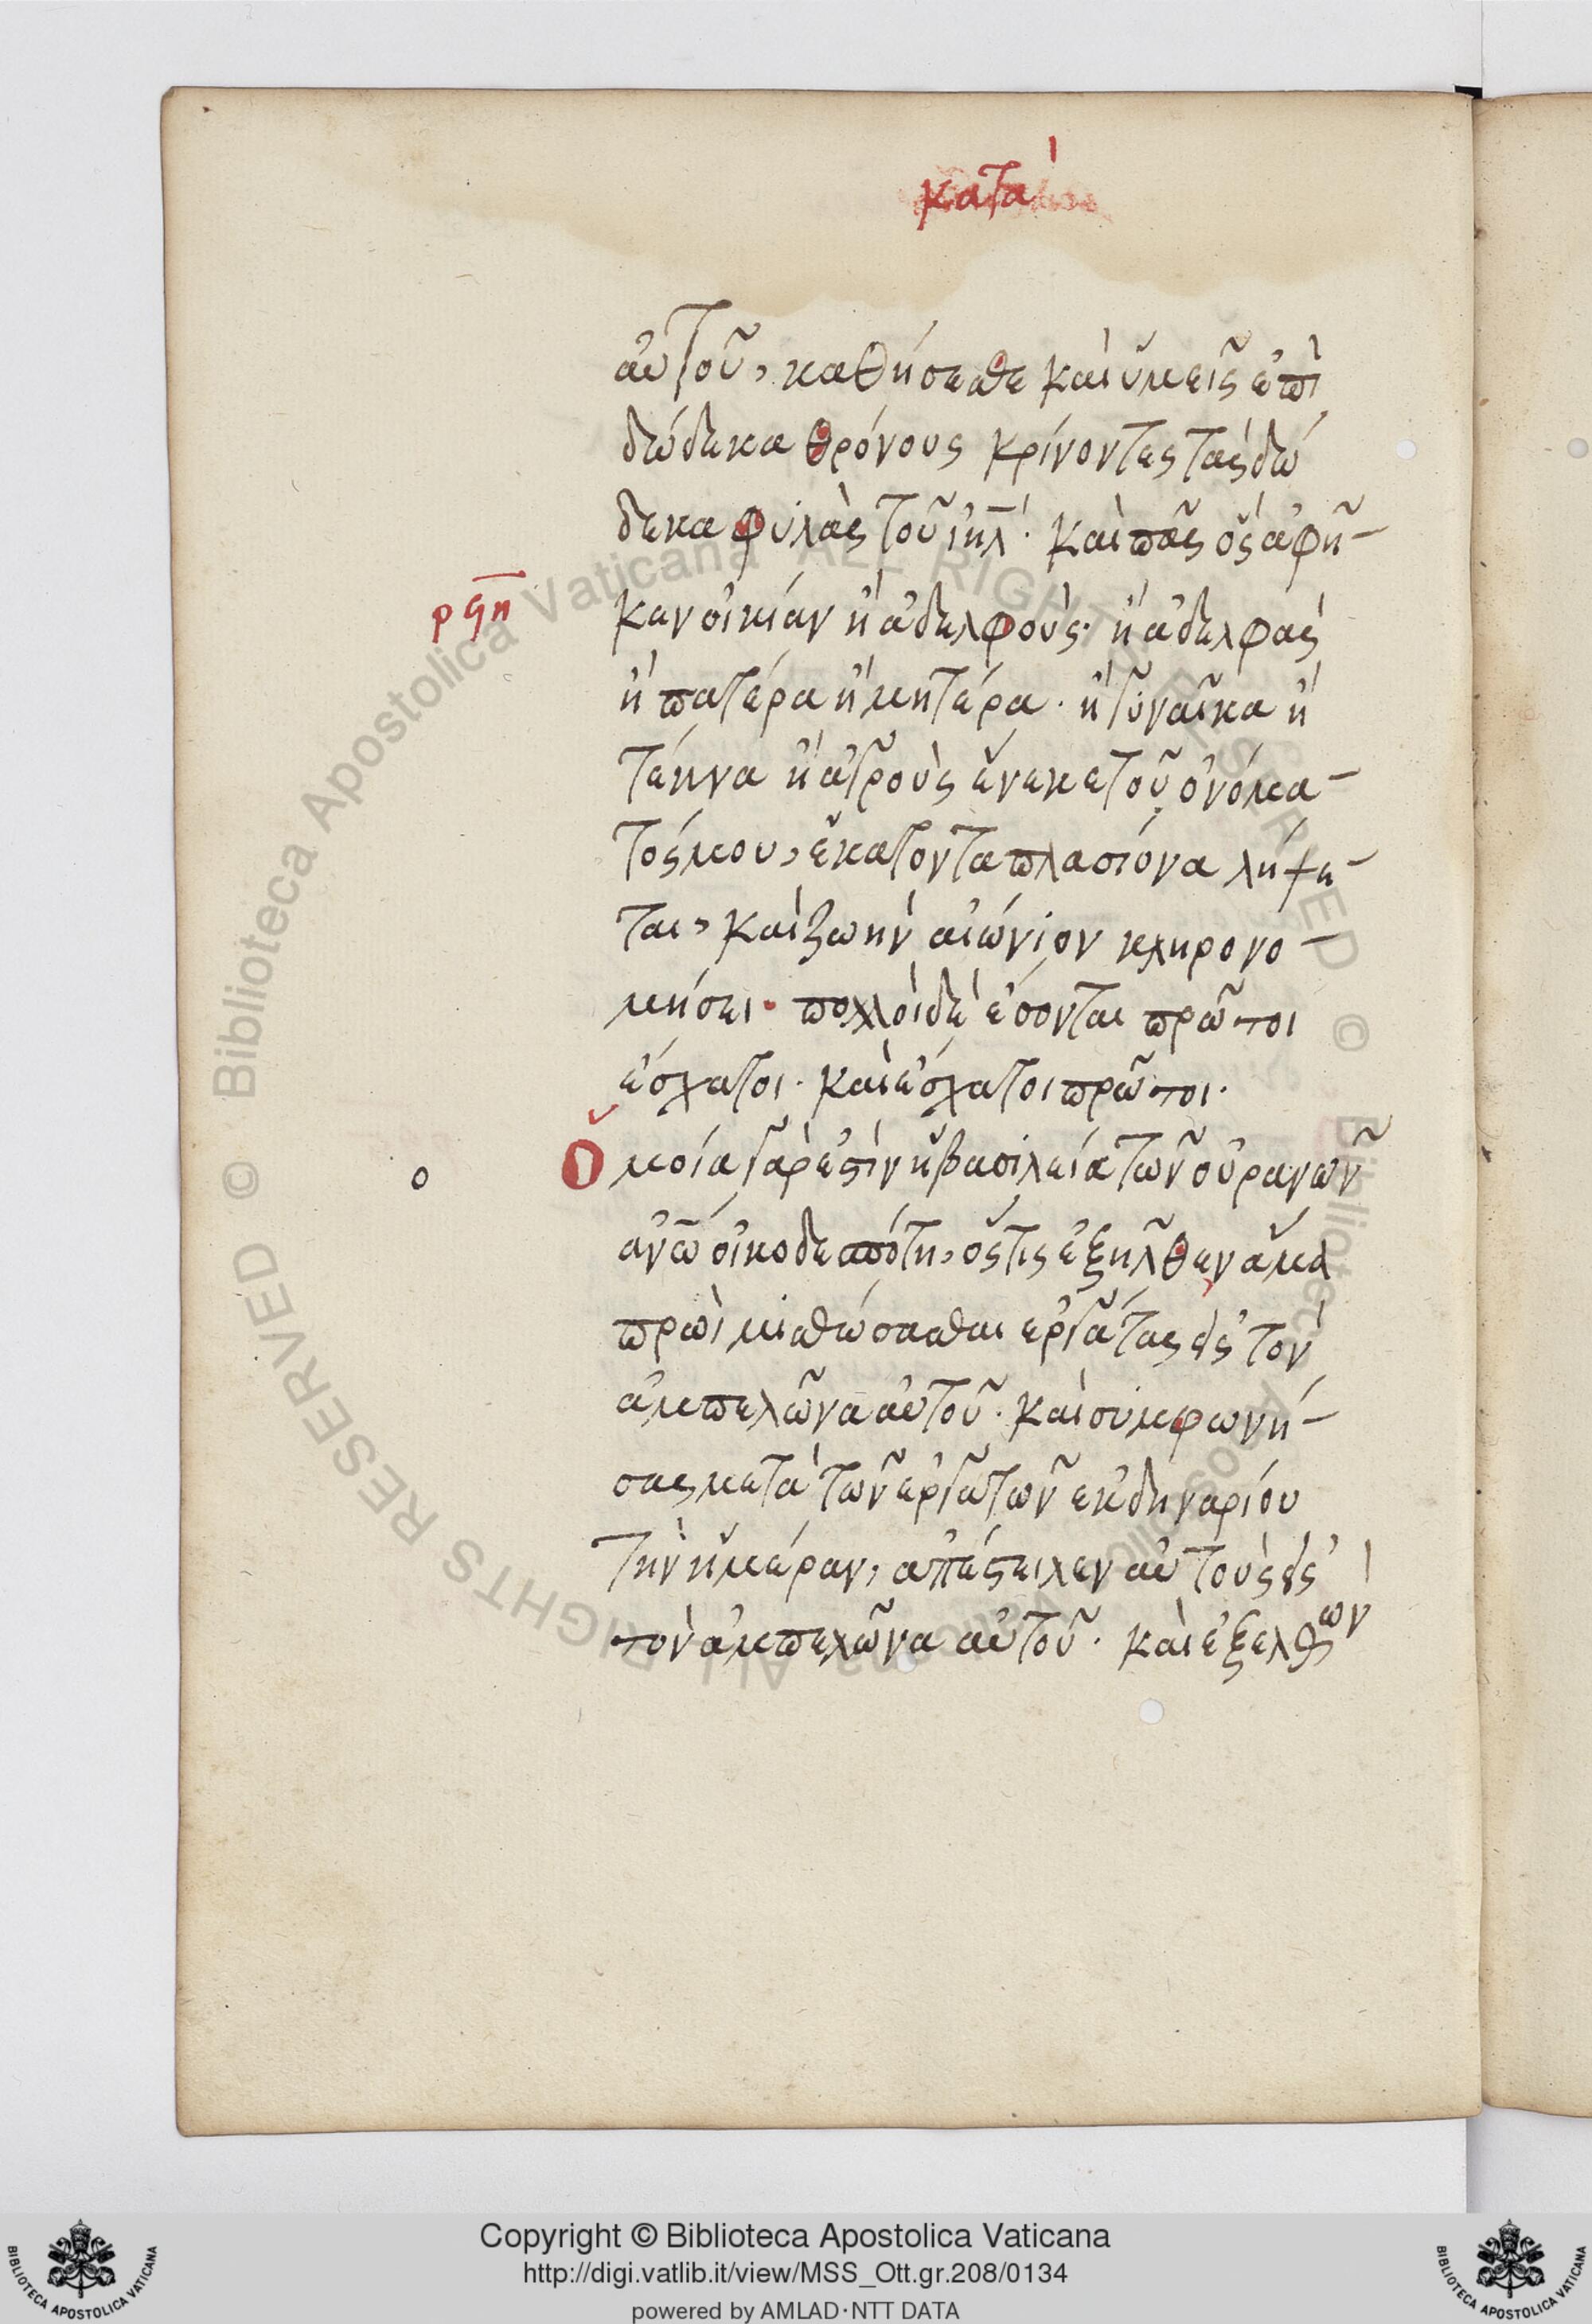 κατὰ
αὐτοῦ, καθήσεσθε καὶ ὑμεῖς ἐπὶ
δώδεκα θρόνους κρίνοντες τὰς δώ
δεκα φυλὰς τοῦ ιηλ· καὶ πᾶς ὃς ἀφῆ-
ρϟη
κεν οἰκίαν ἢ ἀδελφοὺς· ἢ ἀδελφὰς
ἢ πατέρα ἢ μητέρα· ἢ γυναῖκα ἢ
τέκνα ἢ ἀγροὺς ἕνεκε τοῦ ὀνόμα-
τός μου, ἑκατονταπλασίονα λήψε-
ται, καὶ ζωὴν αἰώνιον κληρονο-
μήσει· πολλοὶ δὲ ἔσονται πρῶτοι
ἔσχατοι· καὶ ἔσχατοι πρῶτοι·
ο
Ὁμοία γάρ ἐστὶν ἡ βασιλεία τῶν οὐρανῶν
ἀνῶ οἰκοδεσπότη, ὅστις ἐξῆλθεν ἅμα
πρωῒ μισθώσασθαι ἐργάτας εἰς τὸν
ἀμπελῶνα αὐτοῦ· καὶ συμφωνή-
σας μετὰ τῶν ἐργατῶν ἐκ δηναρίου
τὴν ἡμέραν, ἀπέστειλεν αὐτοὺς εἰς
τὸν ἀμπελῶνα αὐτοῦ· καὶ ἐξελθὼν
Biblioteca Apostolica Vaticana ALL RIGHTS RESERVED ©
Copyright © Biblioteca Apostolica Vaticana
http://digi.vatlib.it/view/MSS_Ott.gr.208/0134
powered by AMLAD·NTT DATA
BIBLIOTECA APOSTOLICA VATICANA
BIBLIOTECA APOSTOLICA VATICANA